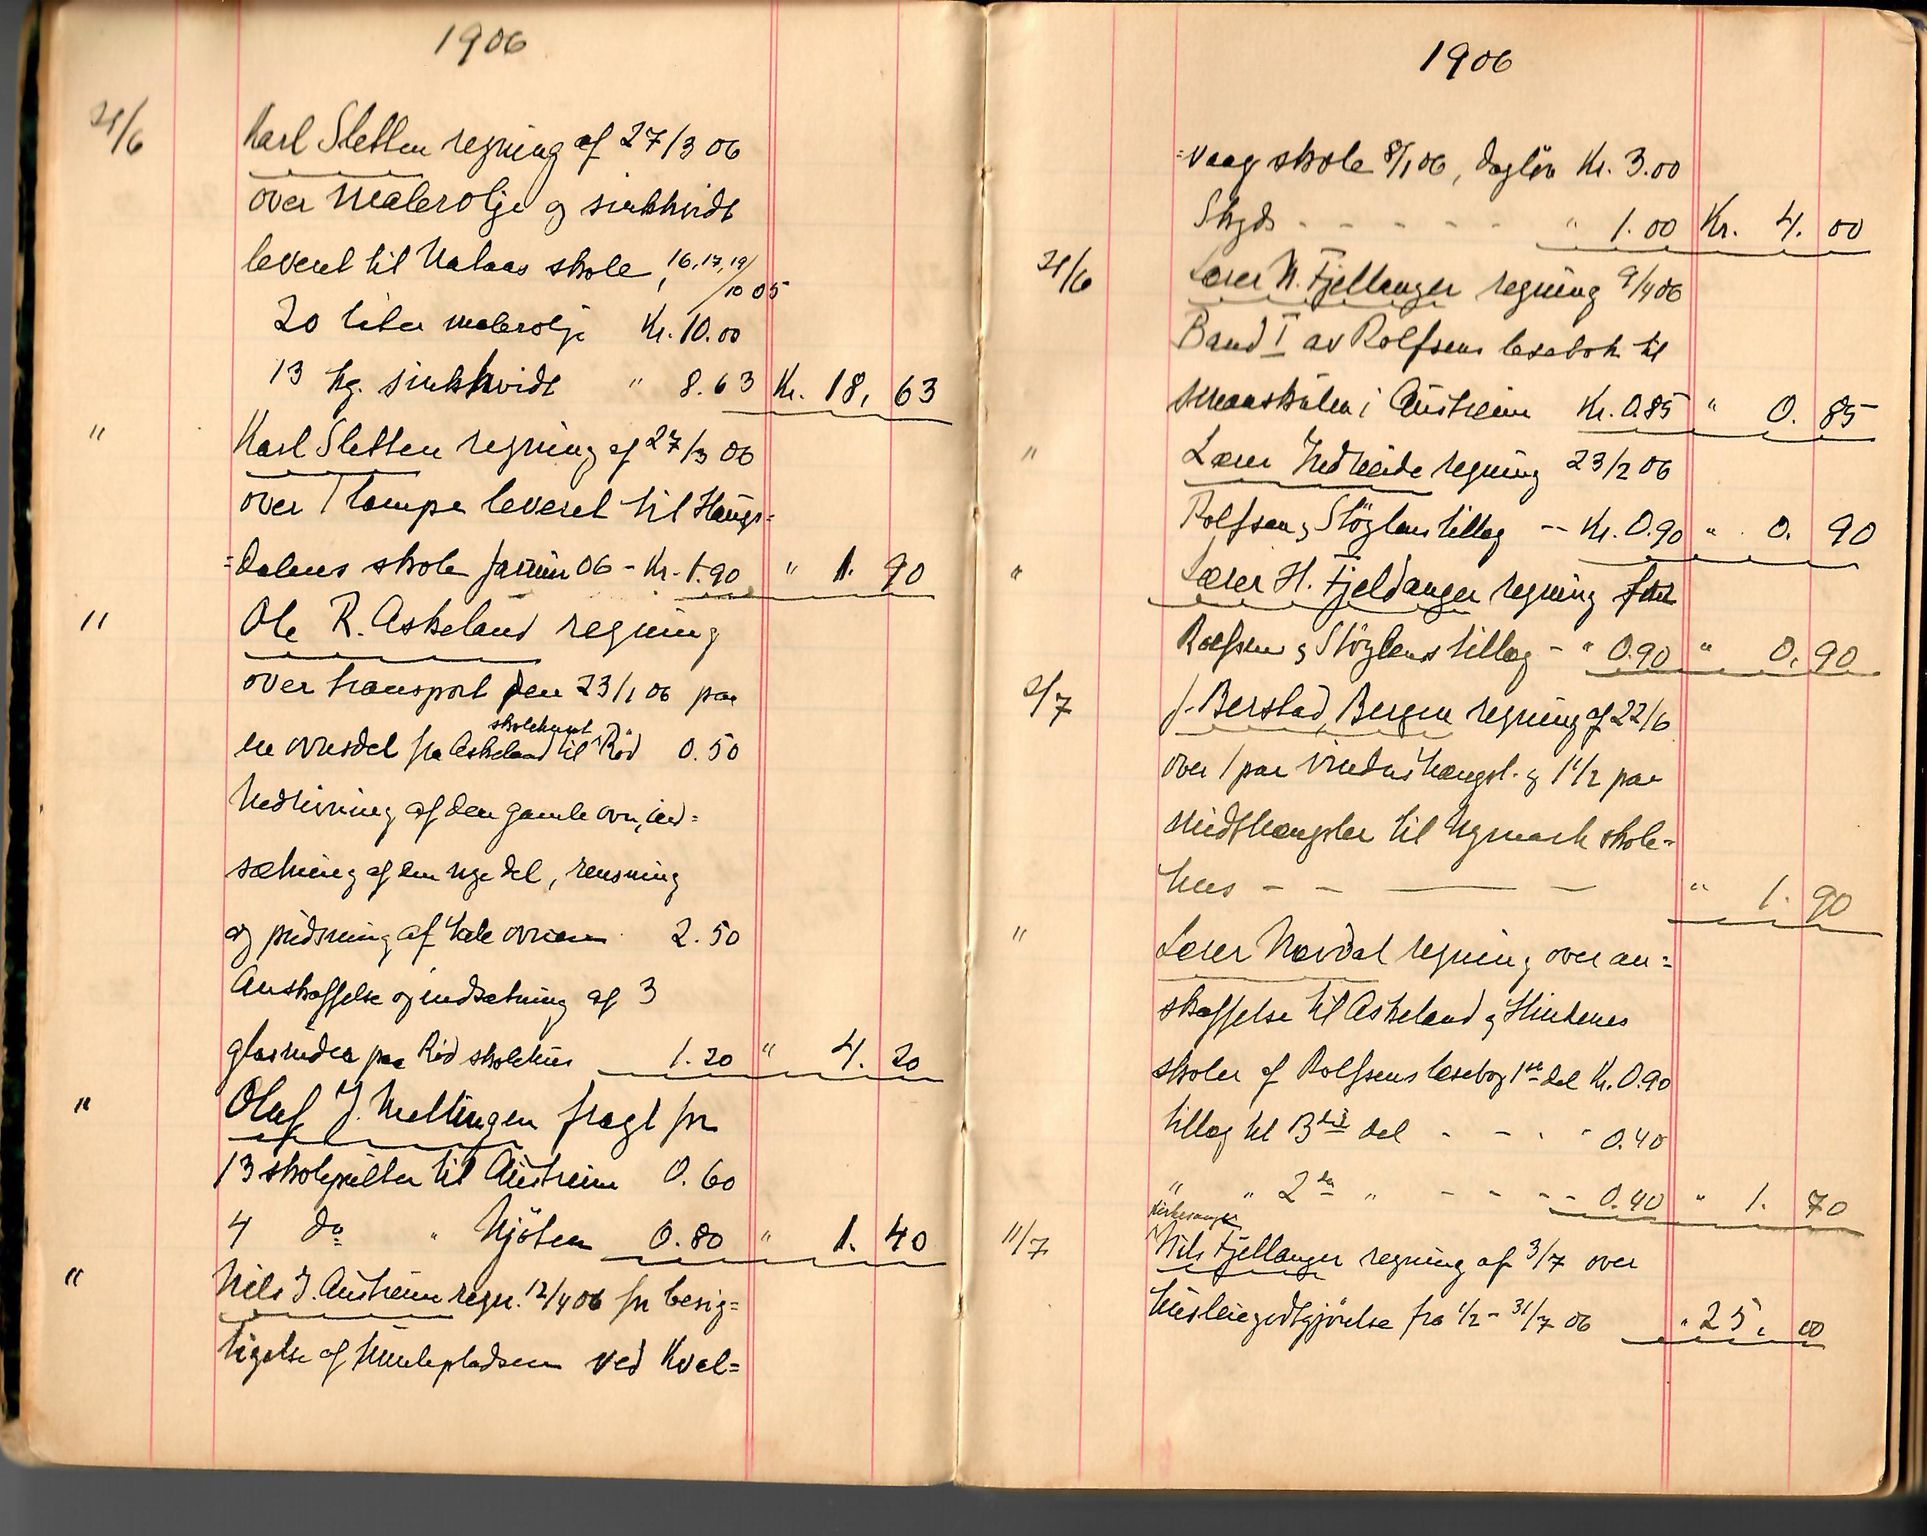 1906
21/6 Karl Sletten regning af 27/3 06
over malerolje og sinkhvidt
leveret til Valaas skole, 16, 17, 19/10 05
20 liter malerolje Kr. 10.00
13 kg. sinkhvidt " 8.63 Kr. 18, 63
" Karl Sletten regning af 27/3 06
over 1 lampe leveret til Haugs-
=dalens skole januar 06 - Kr. 1.90 " 1. 90
" Ole R. Askeland regning
over transport den 23/1 06 paa
en ovnsdel fra Askeland skolehuset til Rød 0.50
Nedrivning af den gamle ovn, ind=
sætning af den nye del, rensning
og pudsning af hele ovnen 2.50
Anskaffelse og indsætning af 3
glasruder paa Rød skolehus 1.20 " 4. 20
" Oluf J. Mellingen fragt for
13 skolepulter til Austreim 0.60
4 do " Njøten 0.80 " 1. 40
" Nils J. Austreim regn. 12/4 06 for besig=
tigelse af tomtepladsen ved Kvel=
1906
=vaag skole 8/1 06, dagløn Kr. 3.00
Skyds - - - - - " 1.00 Kr. 4. 00
21/6 Lærer N. Fjellanger regning 9/4 06
Band I av Rolfsens lesebok til
smaaskulen i Austreim Kr. 0.85 " 0. 85
" Lærer Nedreide regning 23/2 06
Rolfsen, Støylens tillæg -- Kr. 0.90 " 0. 90
" Lærer H. Fjeldanger regning for
Rolfsen, Støylens tillæg - " 0.90 " 0. 90
2/7 J. Berstad, Bergen regning af 22/6
over 1 par vindushængsl. og 1 1/2 par
midthængsler til Nymark skole-
hus - - - - " 1. 90
" Lærer Nævdal regning over an=
skaffelse til Askeland og Hindenes
skoler af Rolfsens læsebog 1ste del Kr. 0.90
tillæg til 3die del - - - " 0.40
" " 2den " - - - - 0.40 " 1. 70
11/7 kirkesanger Nils Fjellanger regning af 3/7 over
husleiegodtgjørelse fra 1/2 - 31/7 06 " 25. 00